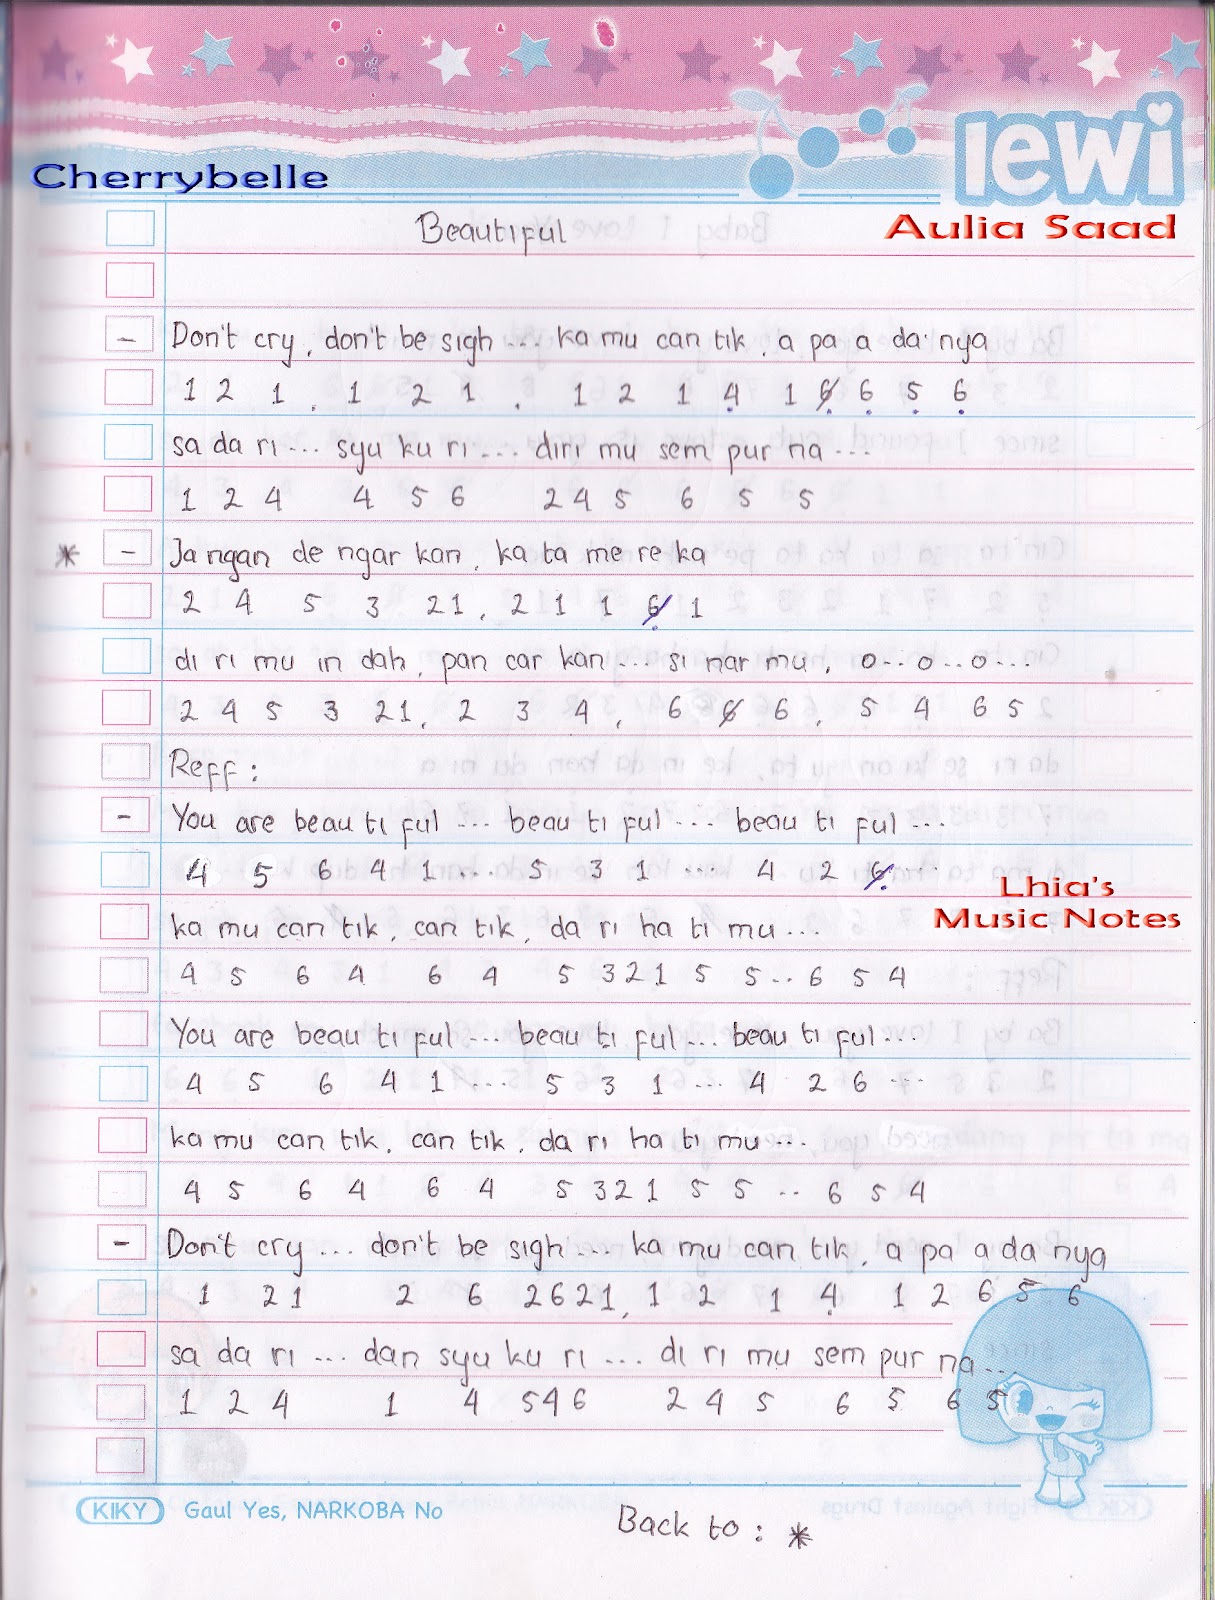 lewi
Cherrybelle
Aulia Saad
Beautiful
- Don't cry, don't be sigh ... ka mu can tik, a pa a da nya
1 2 1 . 1 2 1 . 1 2 1 4 1 6 6 5 6
sa da ri ... syu ku ri ... diri mu sem pur na ...
1 2 4 4 5 6 2 4 5 6 5 5
* - Ja ngan de ngar kan, ka ta me re ka
2 4 5 3 21, 2 1 1 6 1
di ri mu in dah, pan car kan ... si nar mu, o.. o.. o...
2 4 5 3 21, 2 3 4, 6 6 6, 5 4 6 5
Reff :
- You are beau ti ful ... beau ti ful ... beau ti ful ...
4 5 6 4 1 ... 5 3 1 ... 4 2 6
Lhia's
Music Notes
ka mu can tik, can tik, da ri ha ti mu ...
4 5 6 4 6 4 5 3 2 1 5 5 .. 6 5 4
You are beau ti ful ... beau ti ful ... beau ti ful ...
4 5 6 4 1 ... 5 3 1 ... 4 2 6 ...
ka mu can tik, can tik, da ri ha ti mu ...
4 5 6 4 6 4 5 3 2 1 5 5 .. 6 5 4
- Don't cry ... don't be sigh ... ka mu can tik, a pa a da nya
1 2 1 2 6 2 6 2 1, 1 2 1 4 1 2 6 5 6
sa da ri ... dan syu ku ri ... di ri mu sem pur na ...
1 2 4 1 4 5 4 6 2 4 5 6 5 6 5
KIKY Gaul Yes, NARKOBA No
Back to : *